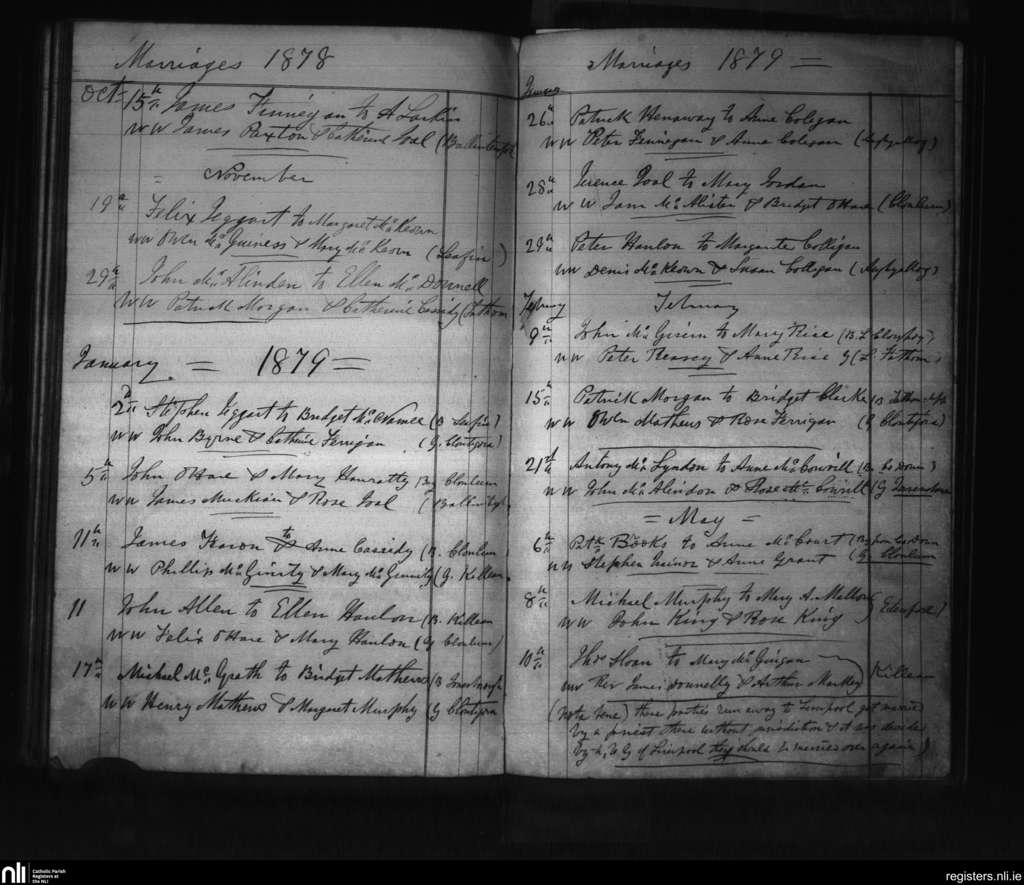 Marriages 1878
Oct 15th James Finnegan to A Larkin
ww James Paxton & Catherine Goal
= November
19th Felix Teggart to Margaret McKeown
ww Owen McGuiness & Mary McKeown (Leafin)
29th John McAlinden to Ellen McDonnell
ww Patrick Morgan & Catherine Cassidy (Fathom
January = 1879 =
2nd Stephen Teggart to Bridget McNamee (B Leafin)
ww John Byrne & Catherine Ferrigan (G. Clontygora)
5th John OHare & Mary Hanratty (B. Clonlum
ww James Muckian & Rose Goal
11th James Fearon to Anne Cassidy (B. Clonlum)
ww Phillip McGinity & Mary McGinnity (G. Killeen
11 John Allen to Ellen Hanlon (B. Killeen
ww Felix OHare & Mary Hanlon (G Clonlum)
17th Michael McGrath to Bridget Mathews (B
ww Henry Mathews & Margaret Murphy (G Clontygora
Marriages 1879 =
26th Patrick Henaway to Anne Colegan
ww Peter Finnegan & Anne Colegan
28th Terence Goal to Mary Jordan
ww Jane McAlister & Bridget OHare (Clonlum)
29th Peter Hanlon to Margarite Colligan
ww Denis McKeown & Susan Colligan
February February
9th John McGivern to Mary Rice
ww Peter Kearney & Anne Rice G (L. Fathom)
15th Patrick Morgan to Bridget Clarke
ww Owen Mathews & Rose Ferrigan (G Clontygora)
21st Antony McLyndon to Anne McCowill (B. Co Down)
ww John McAlindon & Rose McCowill (G
= May =
6th Patk Books to Anne McCourt
ww Stephen Trainor & Anne Grant (G. Clonlum
8th Michael Murphy to Mary A. Mallon
ww John King & Rose King
10th Thos Sloan to Mary McGuigan
ww Rev James Donnelly & Arthur Markey Killeen
(Nota bene) these parties run away to Liverpool got married
by a priest there without jurisdiction & it was decided
by the V G of Liverpool they should be married over again)
nli
Catholic Parish
Registers at
the NLI
registers.nli.ie